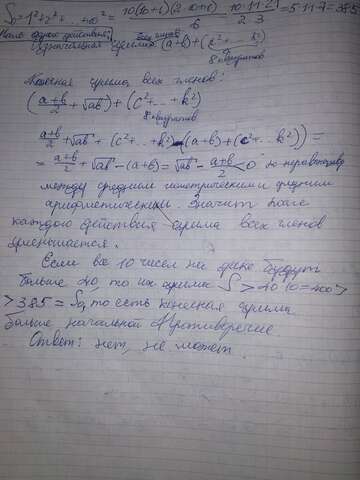 S₀ = 1²+2²+...10² = 10(10+1)(2·10+1)/6 = 10·11·21/2·3 = 5·11·7 = 385
Начальная сумма: (a+b)+(c²+...+k²)
8 квадратов
Конечная сумма всех членов:
(a+b/2 + √ab) + (c²+...+k²)
8 квадратов
a+b/2 + √ab + (c²+...+k²) - ((a+b)+(c²+...+k²)) =
= a+b/2 + √ab - (a+b) = √ab - a+b/2 < 0 по неравенству
между средним геометрическим и средним
арифметическим. Значит после
каждого действия сумма всех членов
уменьшается.
Если все 10 чисел на доске будут
больше 40, то их сумма S > 40·10=400 >
> 385 = S₀, то есть конечная сумма
больше начальной. Противоречие
Ответ: нет, не может.